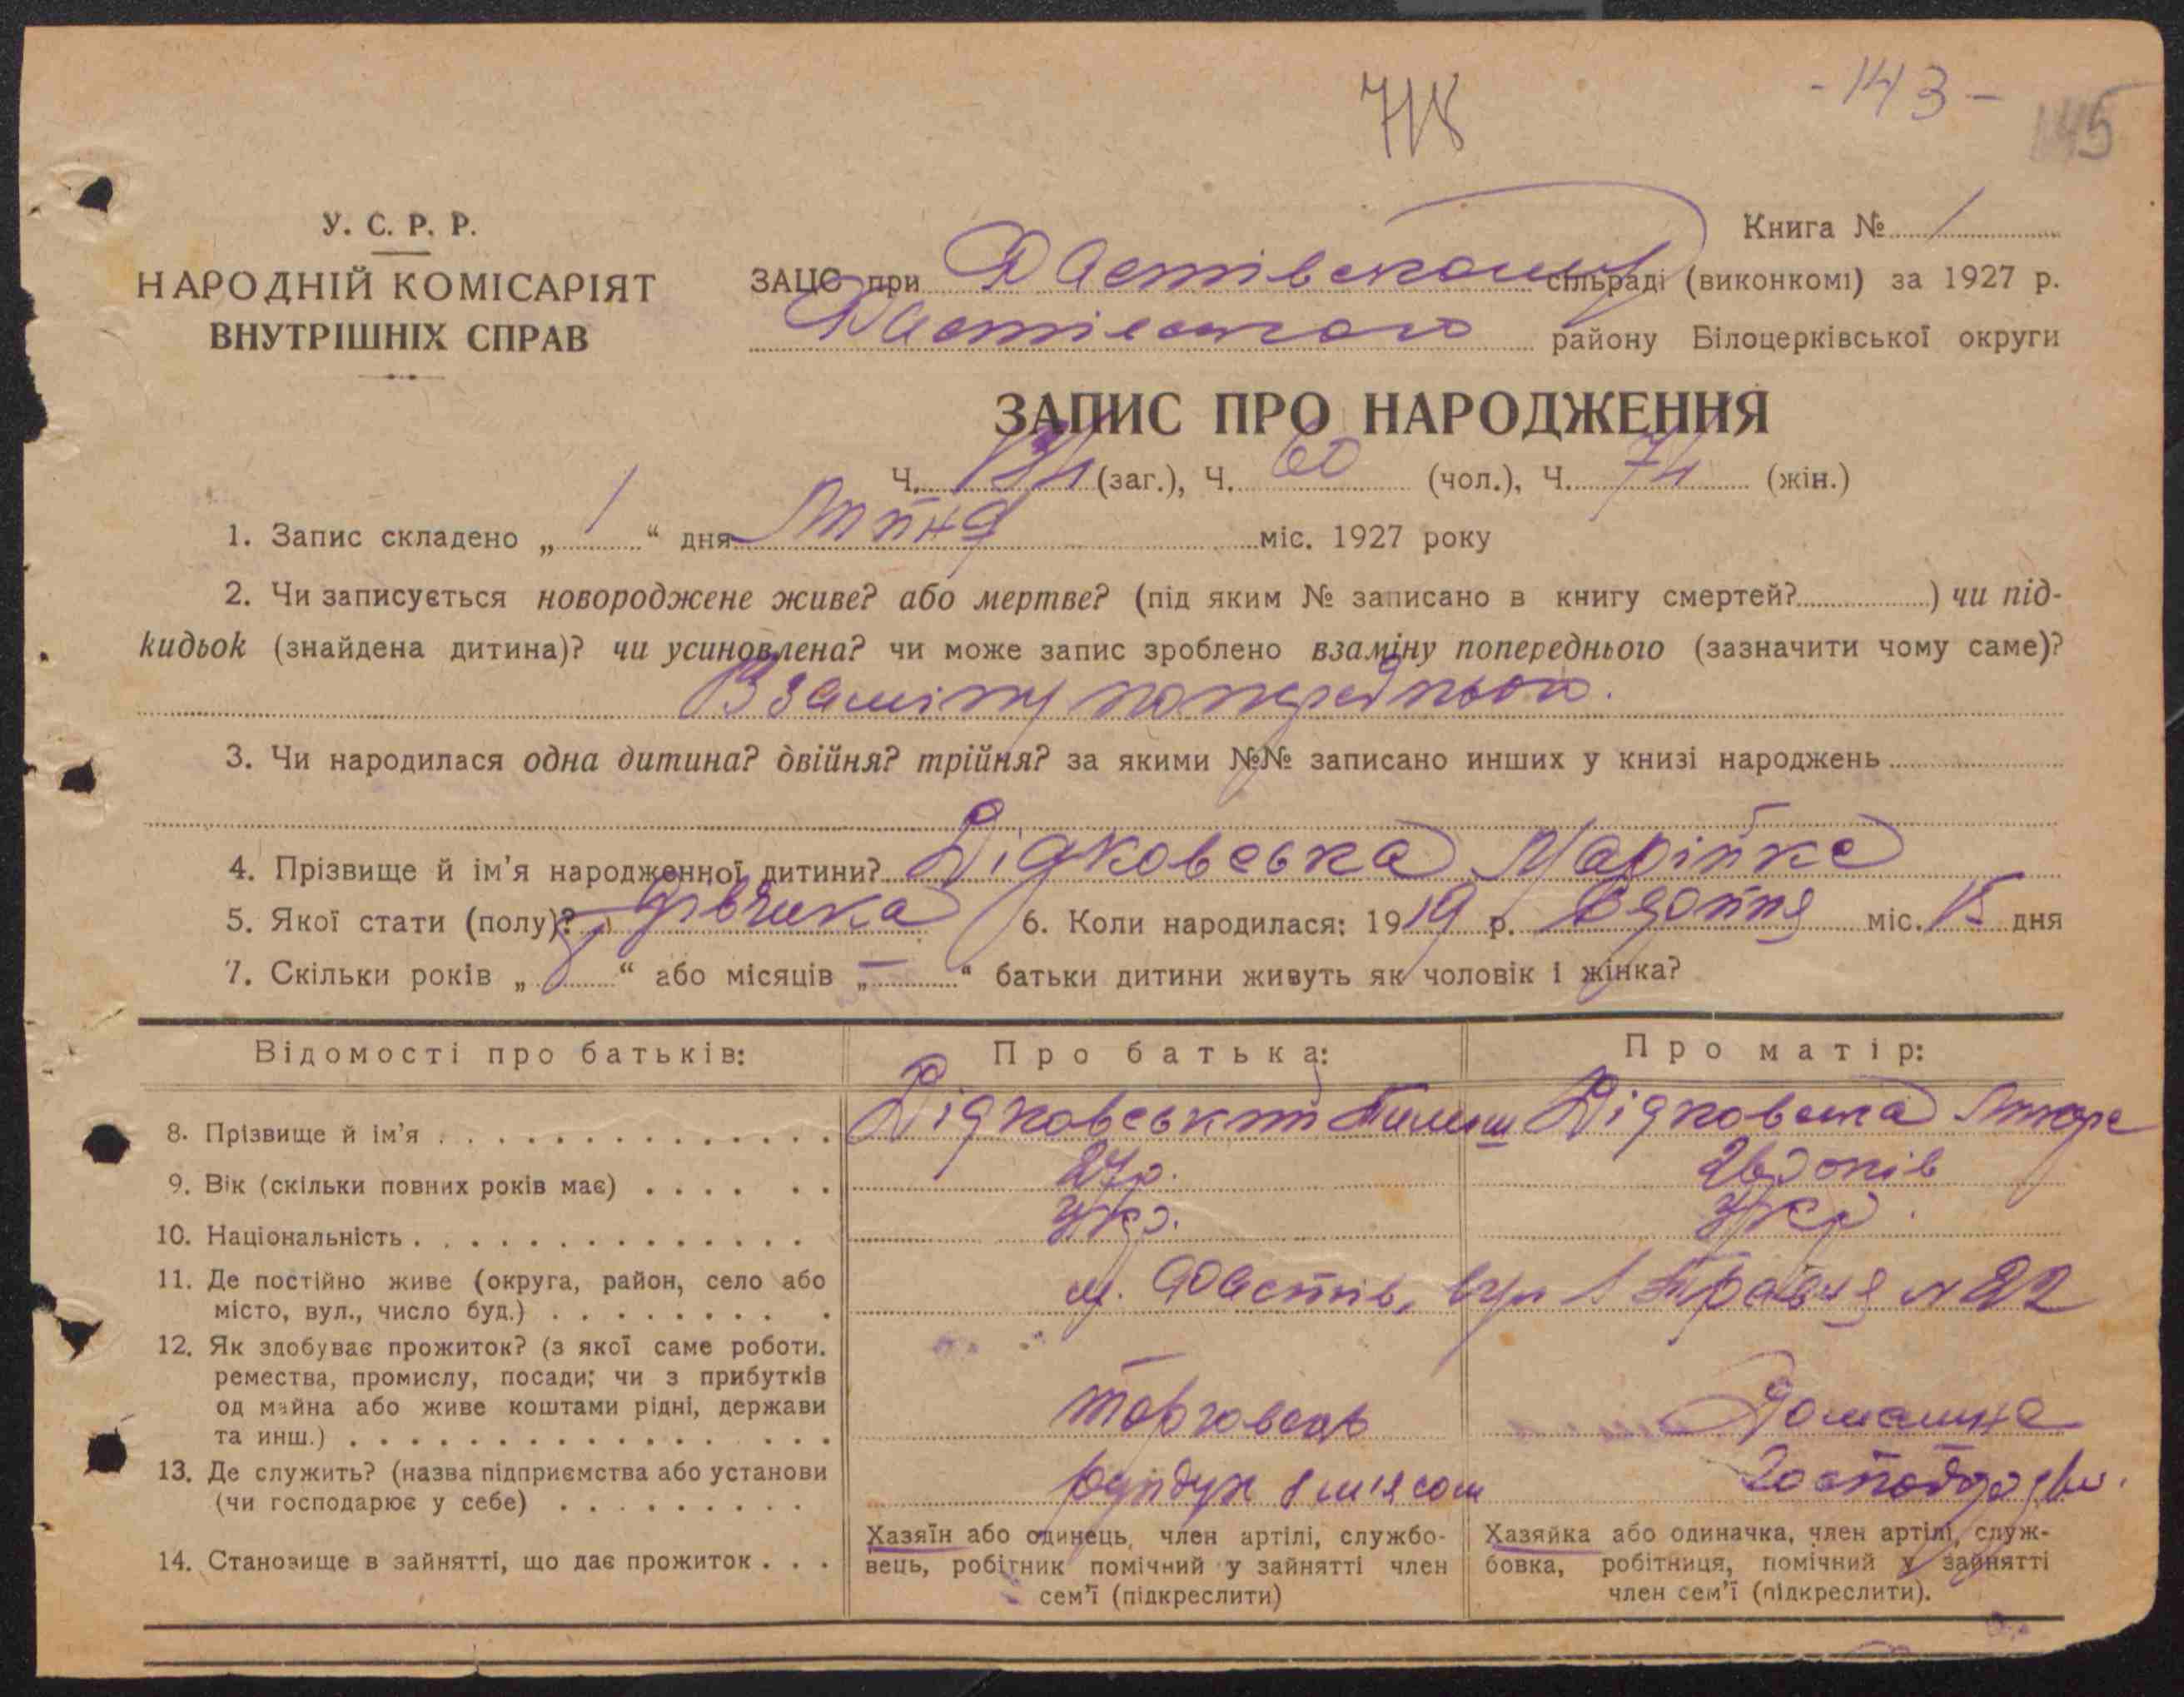 718
- 143 -
145
У. С. Р. Р.
НАРОДНІЙ КОМІСАРІЯТ
ВНУТРІШНІХ СПРАВ
Книга № 1
ЗАЦС при Фастівському сільраді (виконкомі) за 1927 р.
Фастівського району Білоцерківської округи
ЗАПИС ПРО НАРОДЖЕННЯ
Ч. 134 (заг.), Ч. 60 (чол.), Ч. 74 (жін.)
1. Запис складено „ 1 “ дня Липня міс. 1927 року
2. Чи записується новороджене живе? або мертве? (під яким № записано в книгу смертей? ) чи під-
кидьок (знайдена дитина)? чи усиновлена? чи може запис зроблено взаміну попереднього (зазначити чому саме)?
Взаміну попереднього.
3. Чи народилася одна дитина? двійня? трійня? за якими №№ записано инших у книзі народжень
4. Прізвище й ім’я народженної дитини? Дідковська Марійка
5. Якої стати (полу)? дівчика 6. Коли народилася: 1919 р. міс. 15 дня
7. Скільки років „ 8 “ або місяців „ — “ батьки дитини живуть як чоловік і жінка?
Відомості про батьків: Про батька: Про матір:
8. Прізвище й ім’я Дідковський Дідковська
9. Вік (скільки повних років має) 27 р. 26 років
10. Національність Укр. Укр.
11. Де постійно живе (округа, район, село або
місто, вул., число буд.) м. Фастів, вул 1 Травня № 22
12. Як здобуває прожиток? (з якої саме роботи.
ремества, промислу, посади; чи з прибутків
од майна або живе коштами рідні, держави
та инш.) торговець Домашнє
13. Де служить? (назва підприємства або установи
(чи господарює у себе) рундук з м'ясом
14. Становище в зайнятті, що дає прожиток
Хазяїн або одинець, член артілі, службо-
вець, робітник помічний у зайнятті член
сем’ї (підкреслити)
Хазяйка або одиначка, член артілі, служ-
бовка, робітниця, помічний у зайнятті
член сем’ї (підкреслити).